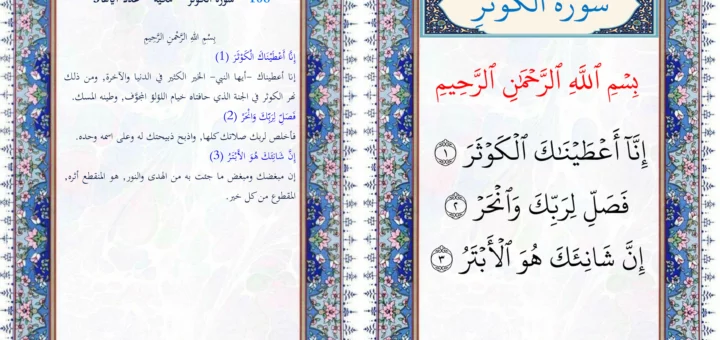 سورة الكوثر
بِسْمِ ٱللَّهِ ٱلرَّحْمَٰنِ ٱلرَّحِيمِ
إِنَّآ أَعْطَيْنَٰكَ ٱلْكَوْثَرَ ١
فَصَلِّ لِرَبِّكَ وَٱنْحَرْ ٢
إِنَّ شَانِئَكَ هُوَ ٱلْأَبْتَرُ ٣
108 سورة الكوثر - مكية - عدد آياتها
بِسْمِ اللَّهِ الرَّحْمَنِ الرَّحِيمِ
إِنَّا أَعْطَيْنَاكَ الْكَوْثَرَ (1)
إنا أعطيناك -أيها النبي- الخير الكثير في الدنيا والآخرة, ومن ذلك
نهر الكوثر في الجنة الذي حافتاه خيام اللؤلؤ المجوَّف, وطينه المسك.
فَصَلِّ لِرَبِّكَ وَانْحَرْ (2)
فأخلص لربك صلاتك كلها, واذبح ذبيحتك له وعلى اسمه وحده.
إِنَّ شَانِئَكَ هُوَ الأَبْتَرُ (3)
إن مبغضك ومبغض ما جئت به من الهدى والنور, هو المنقطع أثره,
المقطوع من كل خير.